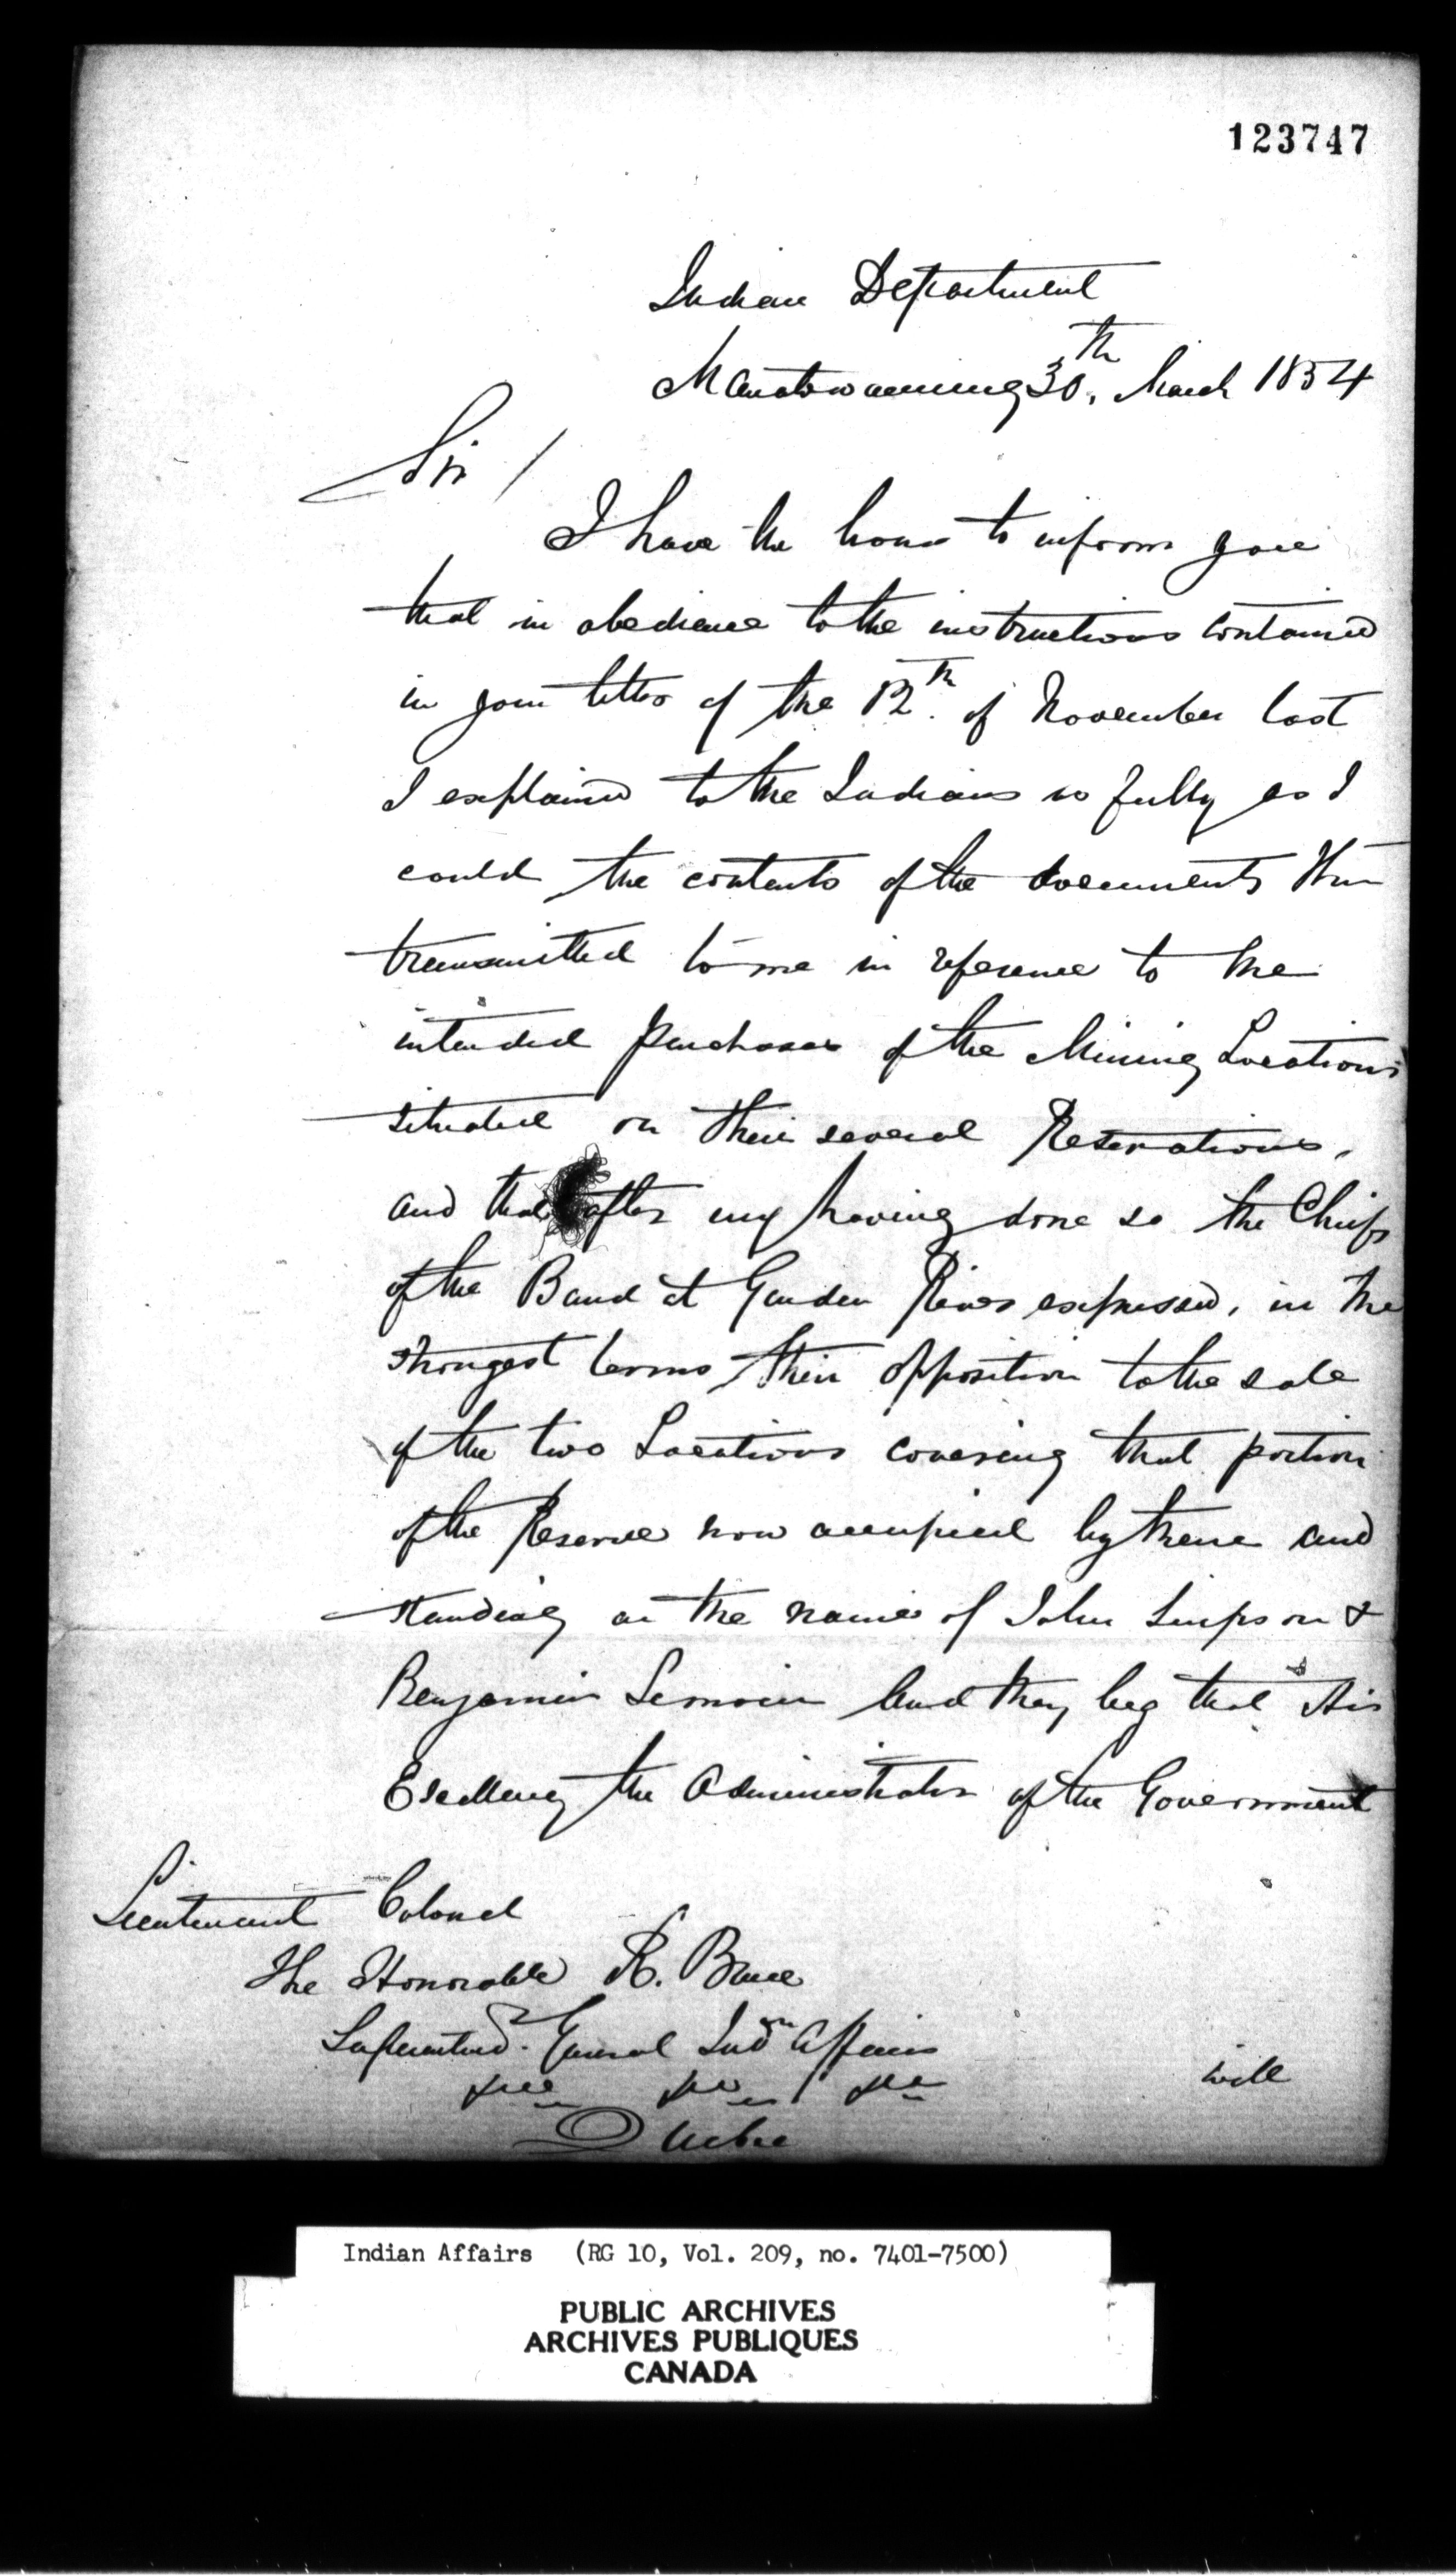 123747
Indian Department
Manatowaning 30th. March 1854
Sir /
I have the honor to inform you
that in obedience to the instructions contained
in your letter of the 12th. of November last
I explained to the Indians so fully as I
could the contents of the documents then
transmitted to me in reference to the
intended purchases of the Mining Locations
situated on their several Reservations,
and that after my having done so the Chiefs
of the Band at Garden River expressed, in the
strongest terms their opposition to the sale
of the two Locations covering that portion
of the Reserve now occupied by them and
standing in the names of John Simpson &
Benjamin Lemoin and they beg that His
Excellency the Administrator of the Government
Lieutenant Colonel
The Honorable R. Bruce
Superintend. General Indn Affairs
&c &c &c
will
Quebec
Indian Affairs (RG 10, Vol. 209, no. 7401-7500)
PUBLIC ARCHIVES
ARCHIVES PUBLIQUES
CANADA